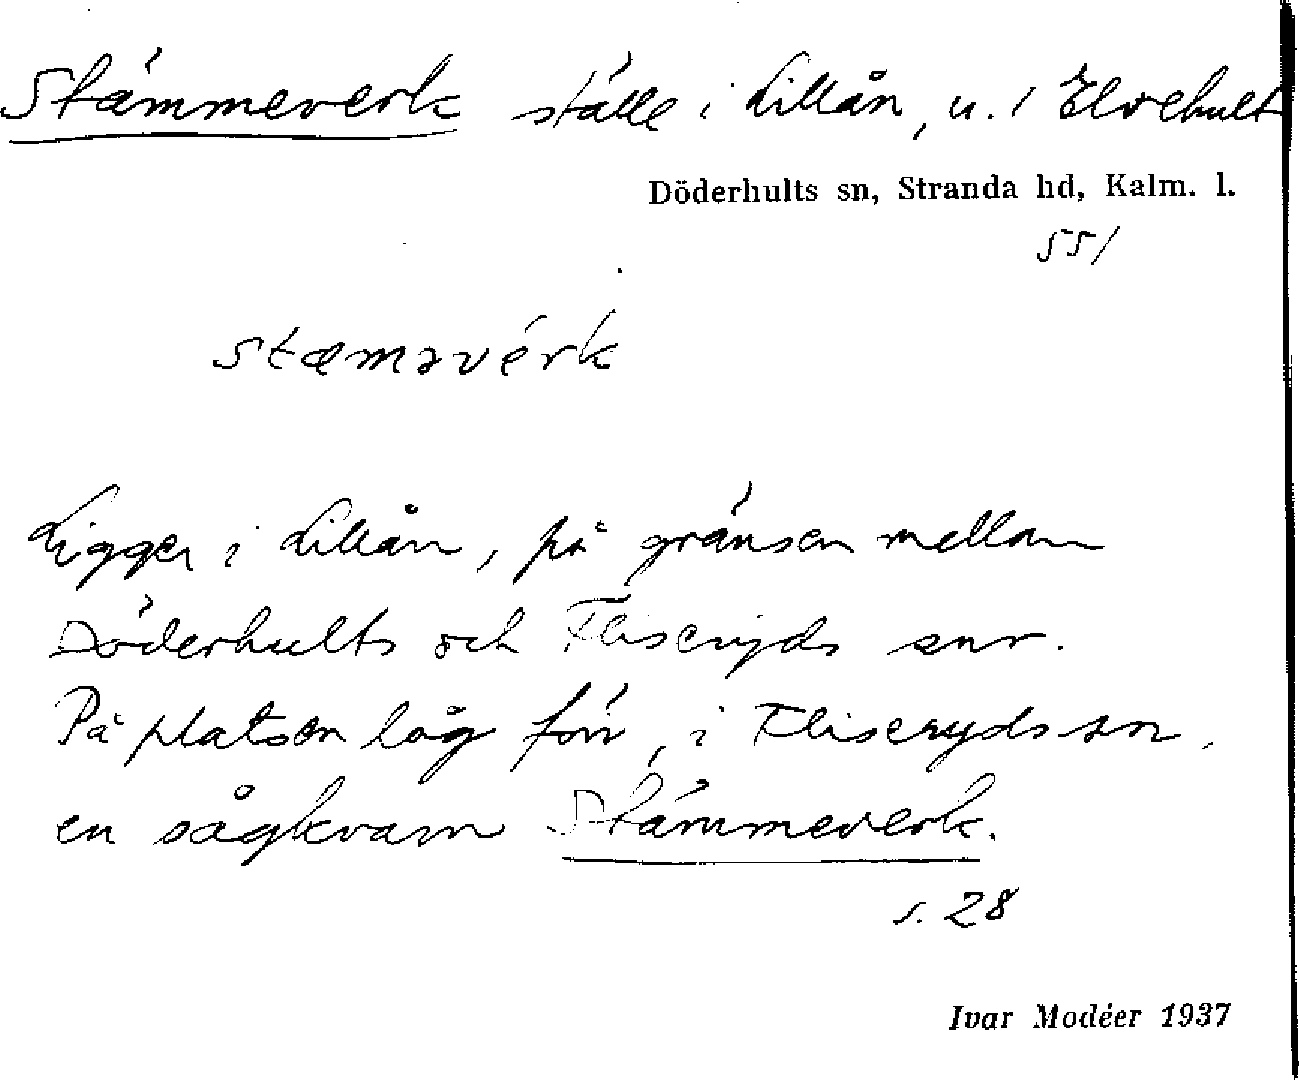 Stämmeverk ställe i Lillån, u. 1 Elvehult
Döderhults sn, Stranda hd, Kalm. l.
551
stæmavérk
Ligger i Lillån, på gränsen mellan
Döderhults och Fliseryds snr.
På platsen låg förr, i Fliseryds sn,
en sågkvarn Stämmeverk.
s. 28
Ivar Modéer 1937